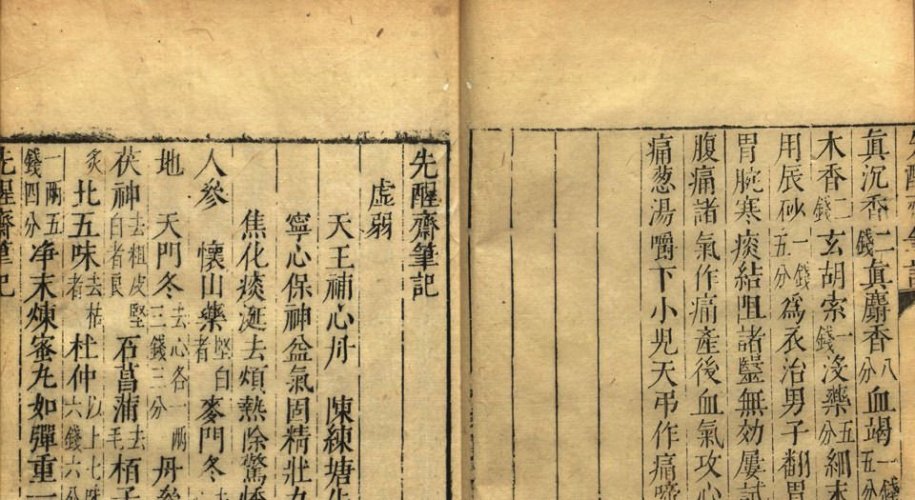 眞沉香二錢眞麝香八分血竭一錢五分
木香二錢玄胡索一錢没藥五分細末
用辰砂一錢五分爲衣治男子翻胃
胃脘寒痰結阻諸醫無効屢試
腹痛諸氣作痛產後血氣攻心
痛葱湯嚼下小兒天弔作痛啼
先醒齋筆記
虛弱
天王補心丹 陳練塘
寧心保神益氣固精壯
焦化痰涎去煩熱除驚悸
人參 懷山藥堅白者 麥門冬去
地 天門冬去心各一兩三錢三分 丹
茯神去粗皮堅白者良 石菖蒲去毛 栢子
炙 北五味去枯者 杜仲以上七味六錢六分
一兩五錢四分 净末煉蜜丸如彈重一
先醒齋筆記